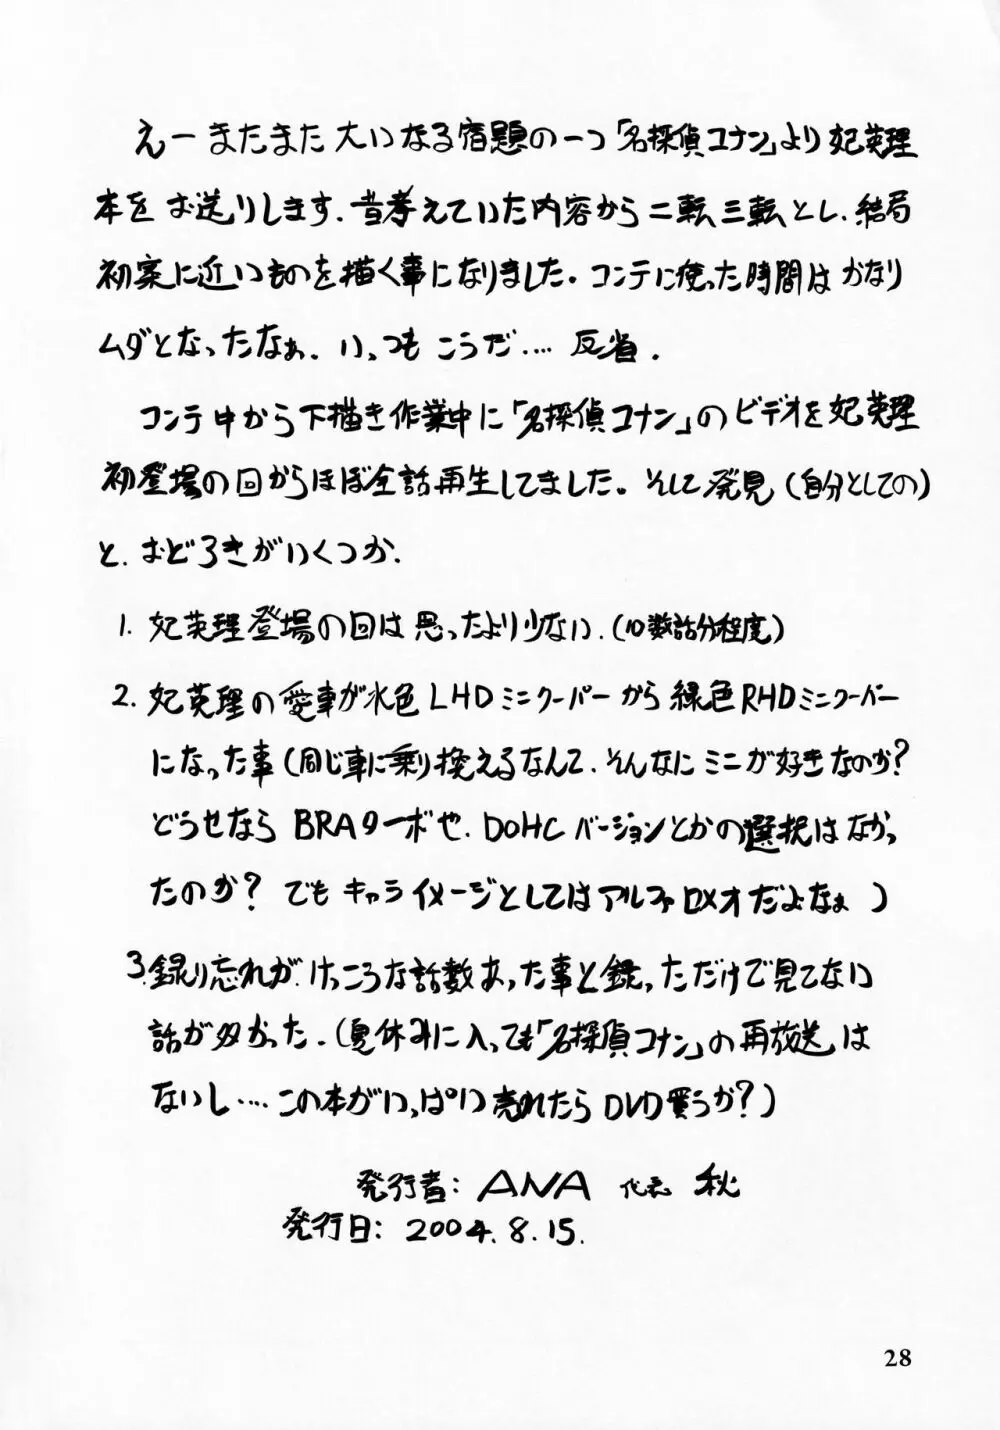 えー またまた 大いなる宿題の一つ「名探偵コナン」より 妃英理
本を お送りします. 昔考えていた内容から 二転三転とし. 結局
初案に近いものを描く事になりました。コンテに使った時間は かなり
ムダとなったなぁ. いっつも こうだ.... 反省.
コンテ中から下描き作業中に「名探偵コナン」のビデオを 妃英理
初登場の回からほぼ全話再生してました。そして発見(自分としての)
と. おどろきがいくつか.
1. 妃英理登場の回は 思ったより少ない. (10数話分程度)
2. 妃英理の愛車が水色LHDミニクーパーから緑色RHDミニクーパー
になった事(同じ車に乗り換えるなんて. そんなに ミニが好きなのか?
どうせなら BRAターボや. DOHCバージョンとかの選択は なかっ
たのか? でも キャライメージとしてはアルファロメオだよなぁ)
3. 録り忘れが. けっこうな話数あった事と録っただけで見てない
話が多かった. (夏休みに入っても「名探偵コナン」の再放送は
ないし.... この本がいっぱい売れたらDVD買うか?)
発行者: ANA 代表 秋
発行日: 2004. 8. 15.
28